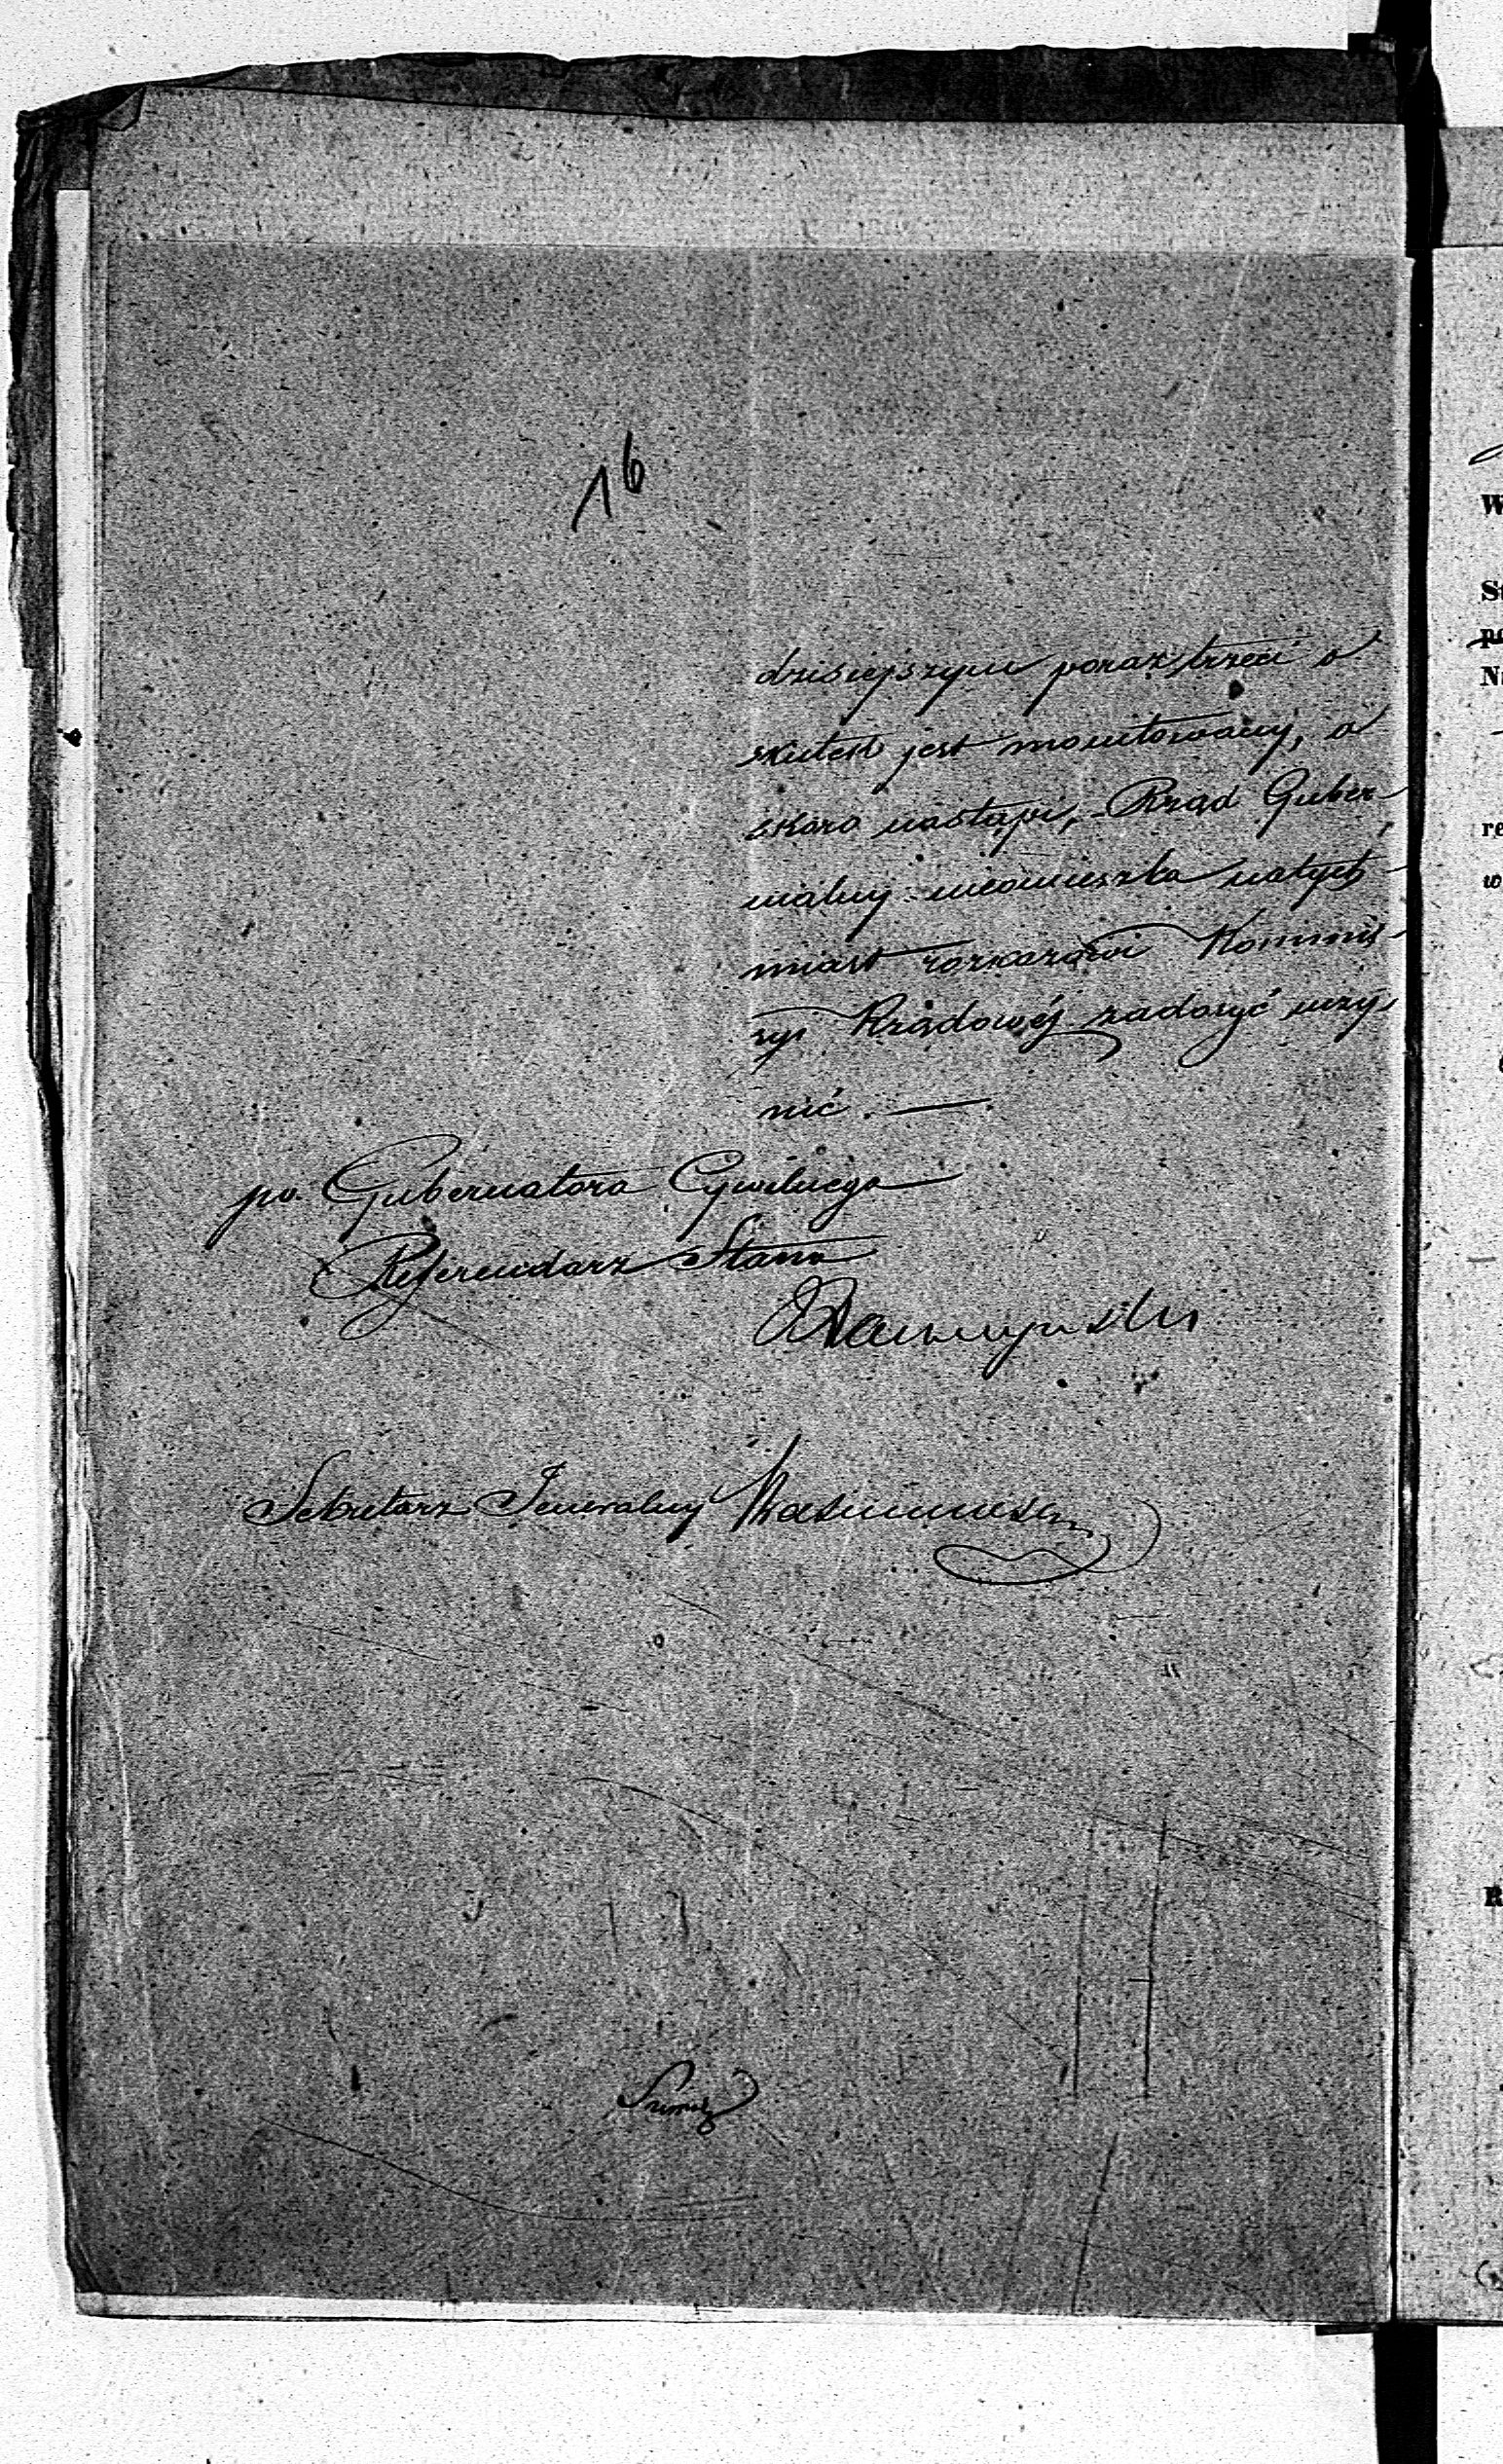 16
dzisiejszym poraz trzeci o
skutek jest monitowany, a
skoro nastąpi, - Rząd Guber-
nialny nieomieszka natych-
miast rozkazowi Kommis-
syi Rządowéj zadosyć uczy-
nić. —
po. Gubernatora Cywilnego
Referendarz Stanu
Sekretarz Jeneralny